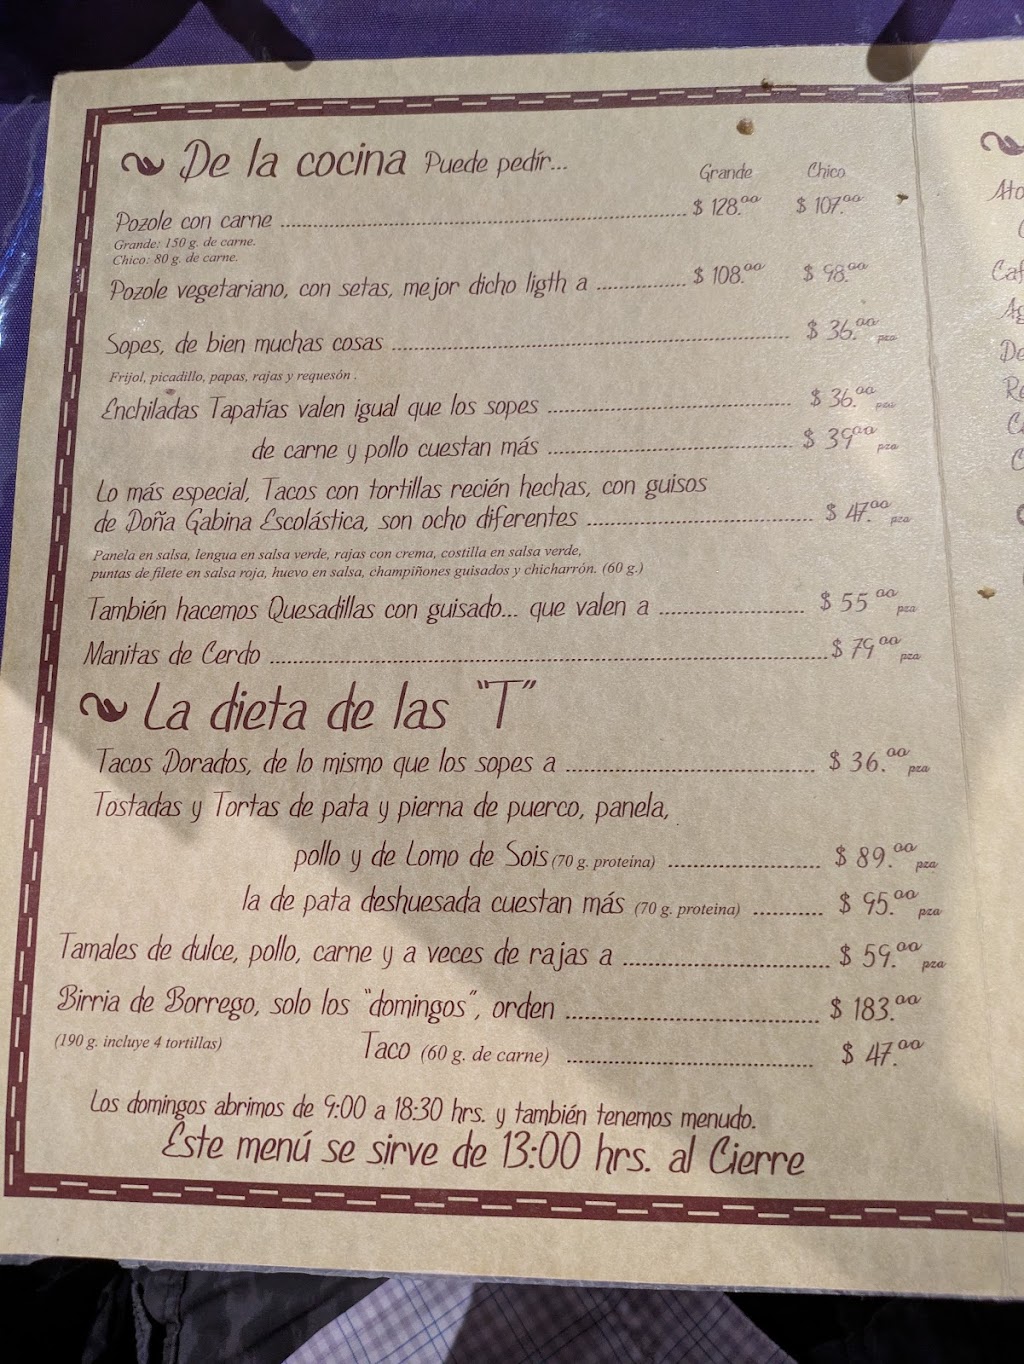 De la cocina Puede pedír...
Grande Chico
Pozole con carne $ 128.00 $ 107.00
Grande: 150 g. de carne.
Chico: 80 g. de carne.
Pozole vegetariano, con setas, mejor dicho ligth a $ 108.00 $ 98.00
Sopes, de bien muchas cosas $ 36.00 pza
Frijol, picadillo, papas, rajas y requesón .
Enchiladas Tapatías valen igual que los sopes $ 36.00 pza
de carne y pollo cuestan más $ 39.00 pza
Lo más especial, Tacos con tortillas recién hechas, con guisos
de Doña Gabina Escolástica, son ocho diferentes $ 47.00 pza
Panela en salsa, lengua en salsa verde, rajas con crema, costilla en salsa verde,
puntas de filete en salsa roja, huevo en salsa, champiñones guisados y chicharrón. (60 g.)
También hacemos Quesadillas con guisado... que valen a $ 55.00 pza
Manitas de Cerdo $ 79.00 pza
La dieta de las "T"
Tacos Dorados, de lo mismo que los sopes a $ 36.00 pza
Tostadas y Tortas de pata y pierna de puerco, panela,
pollo y de Lomo de Sois (70 g. proteina) $ 89.00 pza
la de pata deshuesada cuestan más (70 g. proteina) $ 95.00 pza
Tamales de dulce, pollo, carne y a veces de rajas a $ 59.00 pza
Birria de Borrego, solo los "domingos", orden $ 183.00
(190 g. incluye 4 tortillas) Taco (60 g. de carne) $ 47.00
Los domingos abrimos de 9:00 a 18:30 hrs. y también tenemos menudo.
Este menú se sirve de 13:00 hrs. al Cierre